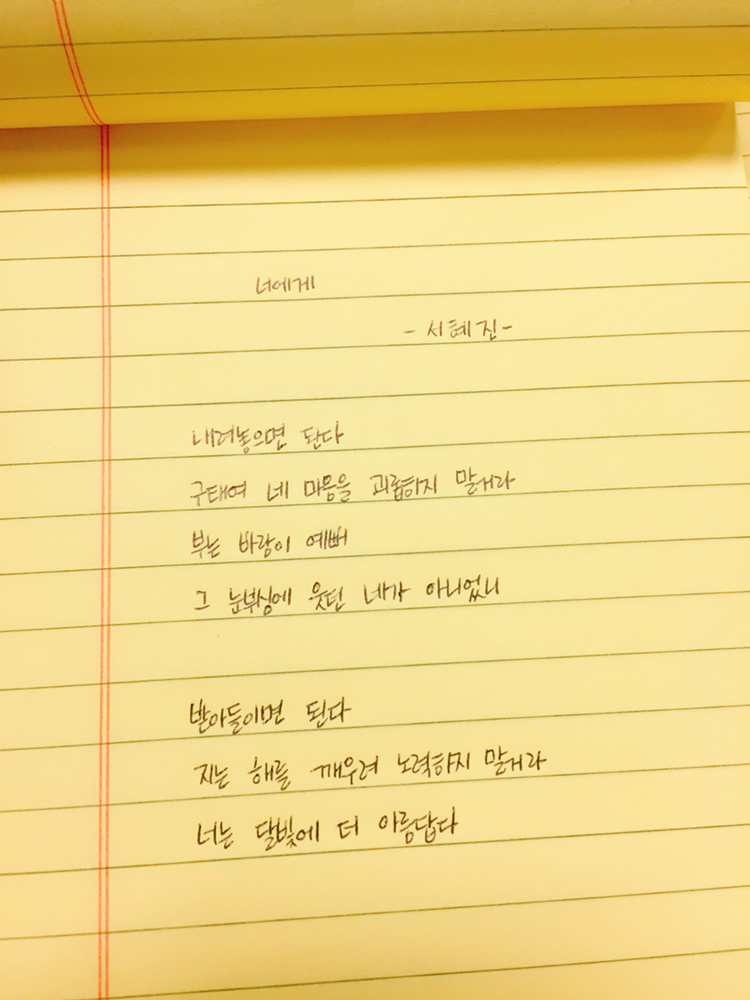 너에게
- 서혜진 -
내려놓으면 된다
구태여 네 마음을 괴롭히지 말거라
부는 바람이 예뻐
그 눈부심에 웃던 네가 아니었니
받아들이면 된다
지는 해를 깨우려 노력하지 말거라
너는 달빛에 더 아름답다